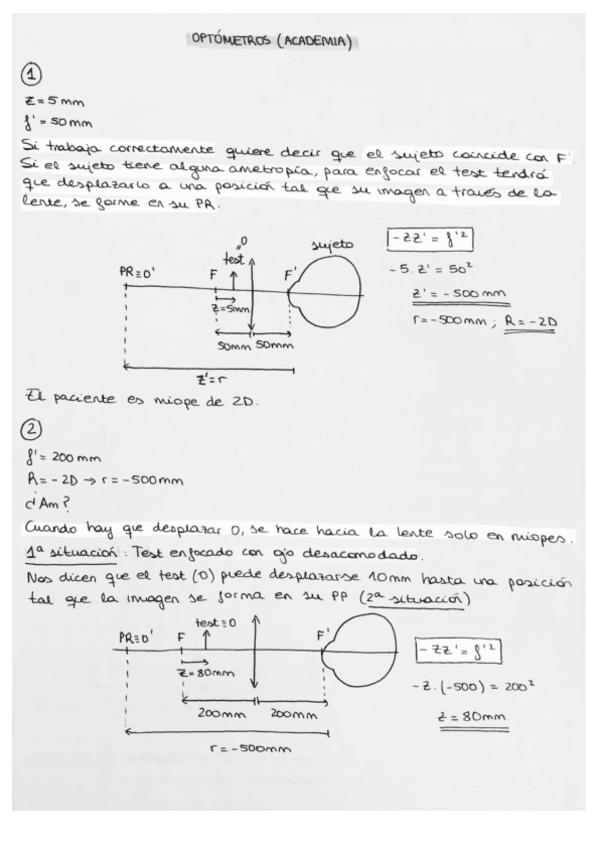 OPTÓMETROS (ACADEMIA)
1
z = 5 mm
f' = 50 mm
Si trabaja correctamente quiere decir que el sujeto coincide con F'.
Si el sujeto tiene alguna ametropía, para enfocar el test tendrá
que desplazarlo a una posición tal que su imagen a través de la
lente, se forme en su PR.
O
test
sujeto
PR≡O'
F
F'
z=5mm
50mm
50mm
z'=r
-zz' = f'²
-5. z' = 50²
z' = -500 mm
r=-500mm ; R=-2D
El paciente es miope de 2D.
2
f' = 200 mm
R = -2D → r = -500mm
¿Am?
Cuando hay que desplazar O, se hace hacia la lente solo en miopes.
1ª situación: Test enfocado con ojo desacomodado.
Nos dicen que el test (O) puede desplazarse 10mm hasta una posición
tal que la imagen se forma en su PP (2ª situación)
test≡O
PR≡O'
F
F'
z=80mm
200mm
200mm
r=-500mm
-zz' = f'²
-z. (-500) = 200²
z = 80mm